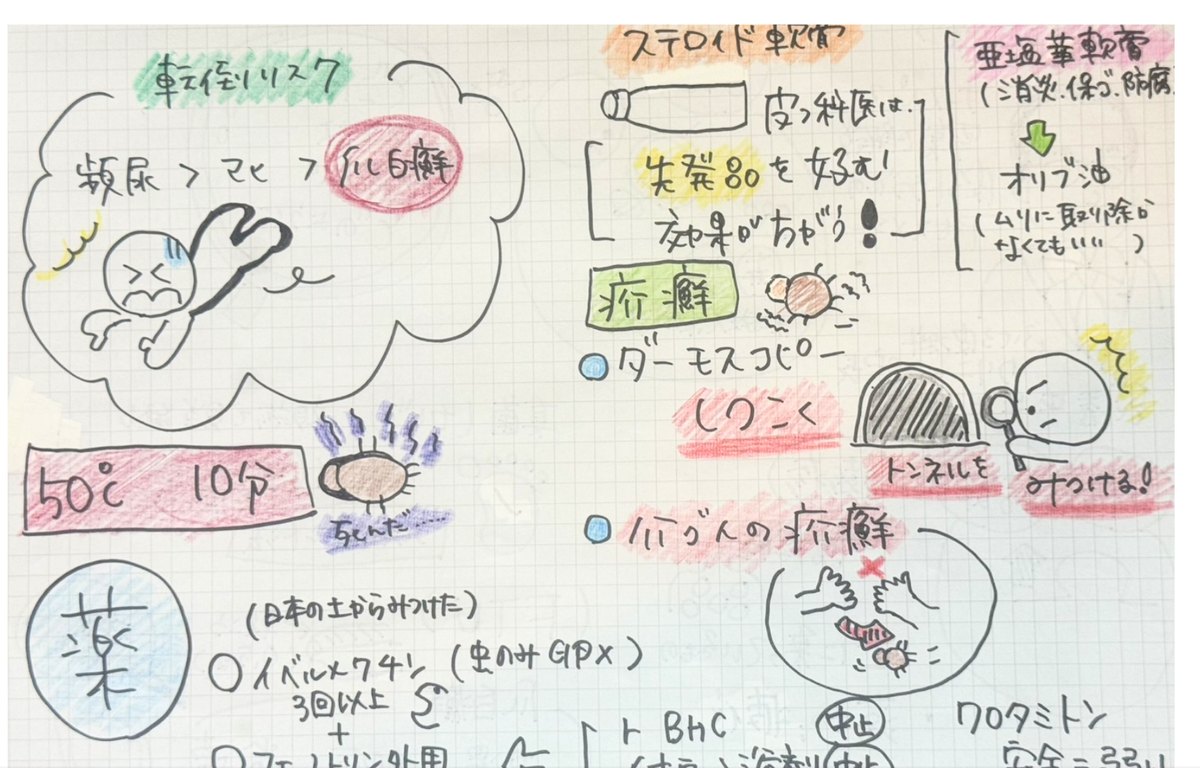 転倒リスク
頻尿 > マヒ > 爪白癬
50℃ 10分
死んだ……
薬
(日本の土からみつけた)
○イベルメクチン (虫のみ GPX)
3回以上
+
○フェノトリン外用
ステロイド軟膏
皮フ科医は、
先発品を好む!
効果がちがう!
亜塩華軟膏
(消炎.保ゴ.防腐
オリブ油
(ムリに取り除か
なくてもいい)
疥癬
ダーモスコピー
しつこく
トンネルを
みつける!
疥癬
BHC 中止
中止
クロタミトン
安全=弱い